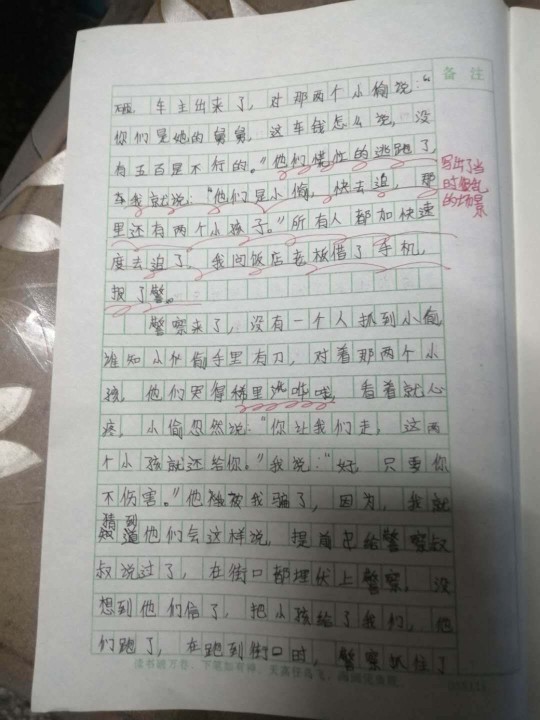 备注
车主出来了，对那两个小偷说：“
你们是她的舅舅，这车钱怎么说，没
有五百是不行的。”他们慌忙的逃跑了，
我就说：“他们是小偷，快去追，那
里还有两个小孩子。”所有人都加快速
度去追了，我向饭店老板借了手机，
报了警。
写出了当
时
的场景
警察来了，没有一个人抓到小偷
谁知小偷手里有刀，对着那两个小
孩，他们哭得稀里哗啦，看着就心
疼，小偷忽然说：“你让我们走，这两
个小孩就还给你。”我说：“好，只要你
不伤害。”他被我骗了，因为，我就
猜到
知道他们会这样说，提前已给警察叔
叔说过了，在街口都埋伏上警察，没
想到他们信了，把小孩给了我们，他
们跑了，在跑到街口时，警察抓住了
读书破万卷，下笔如有神，天高任鸟飞，海阔凭鱼跃